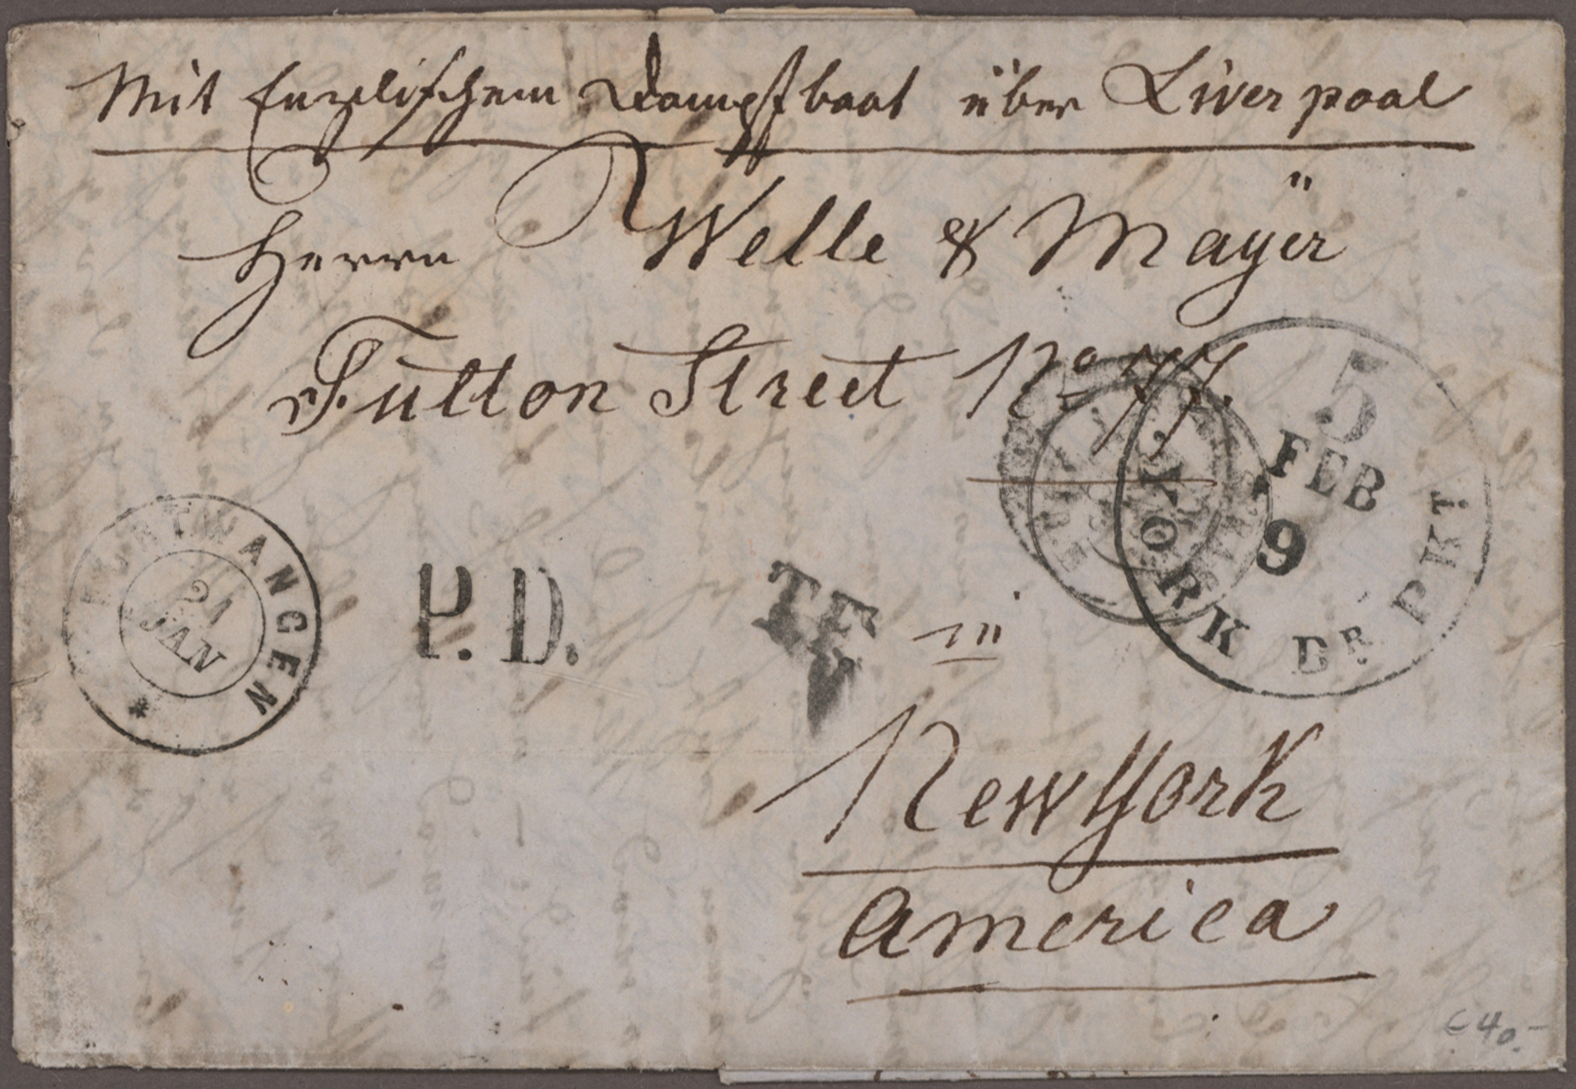 Mit Englischem Dampfboot über Liverpool
Herrn Welle & Mayer
Fulton Street No 77.
5
FEB
9
YORK BR PKT
FURTWANGEN
21
JAN
P. D.
in
New York
America
€ 40.-